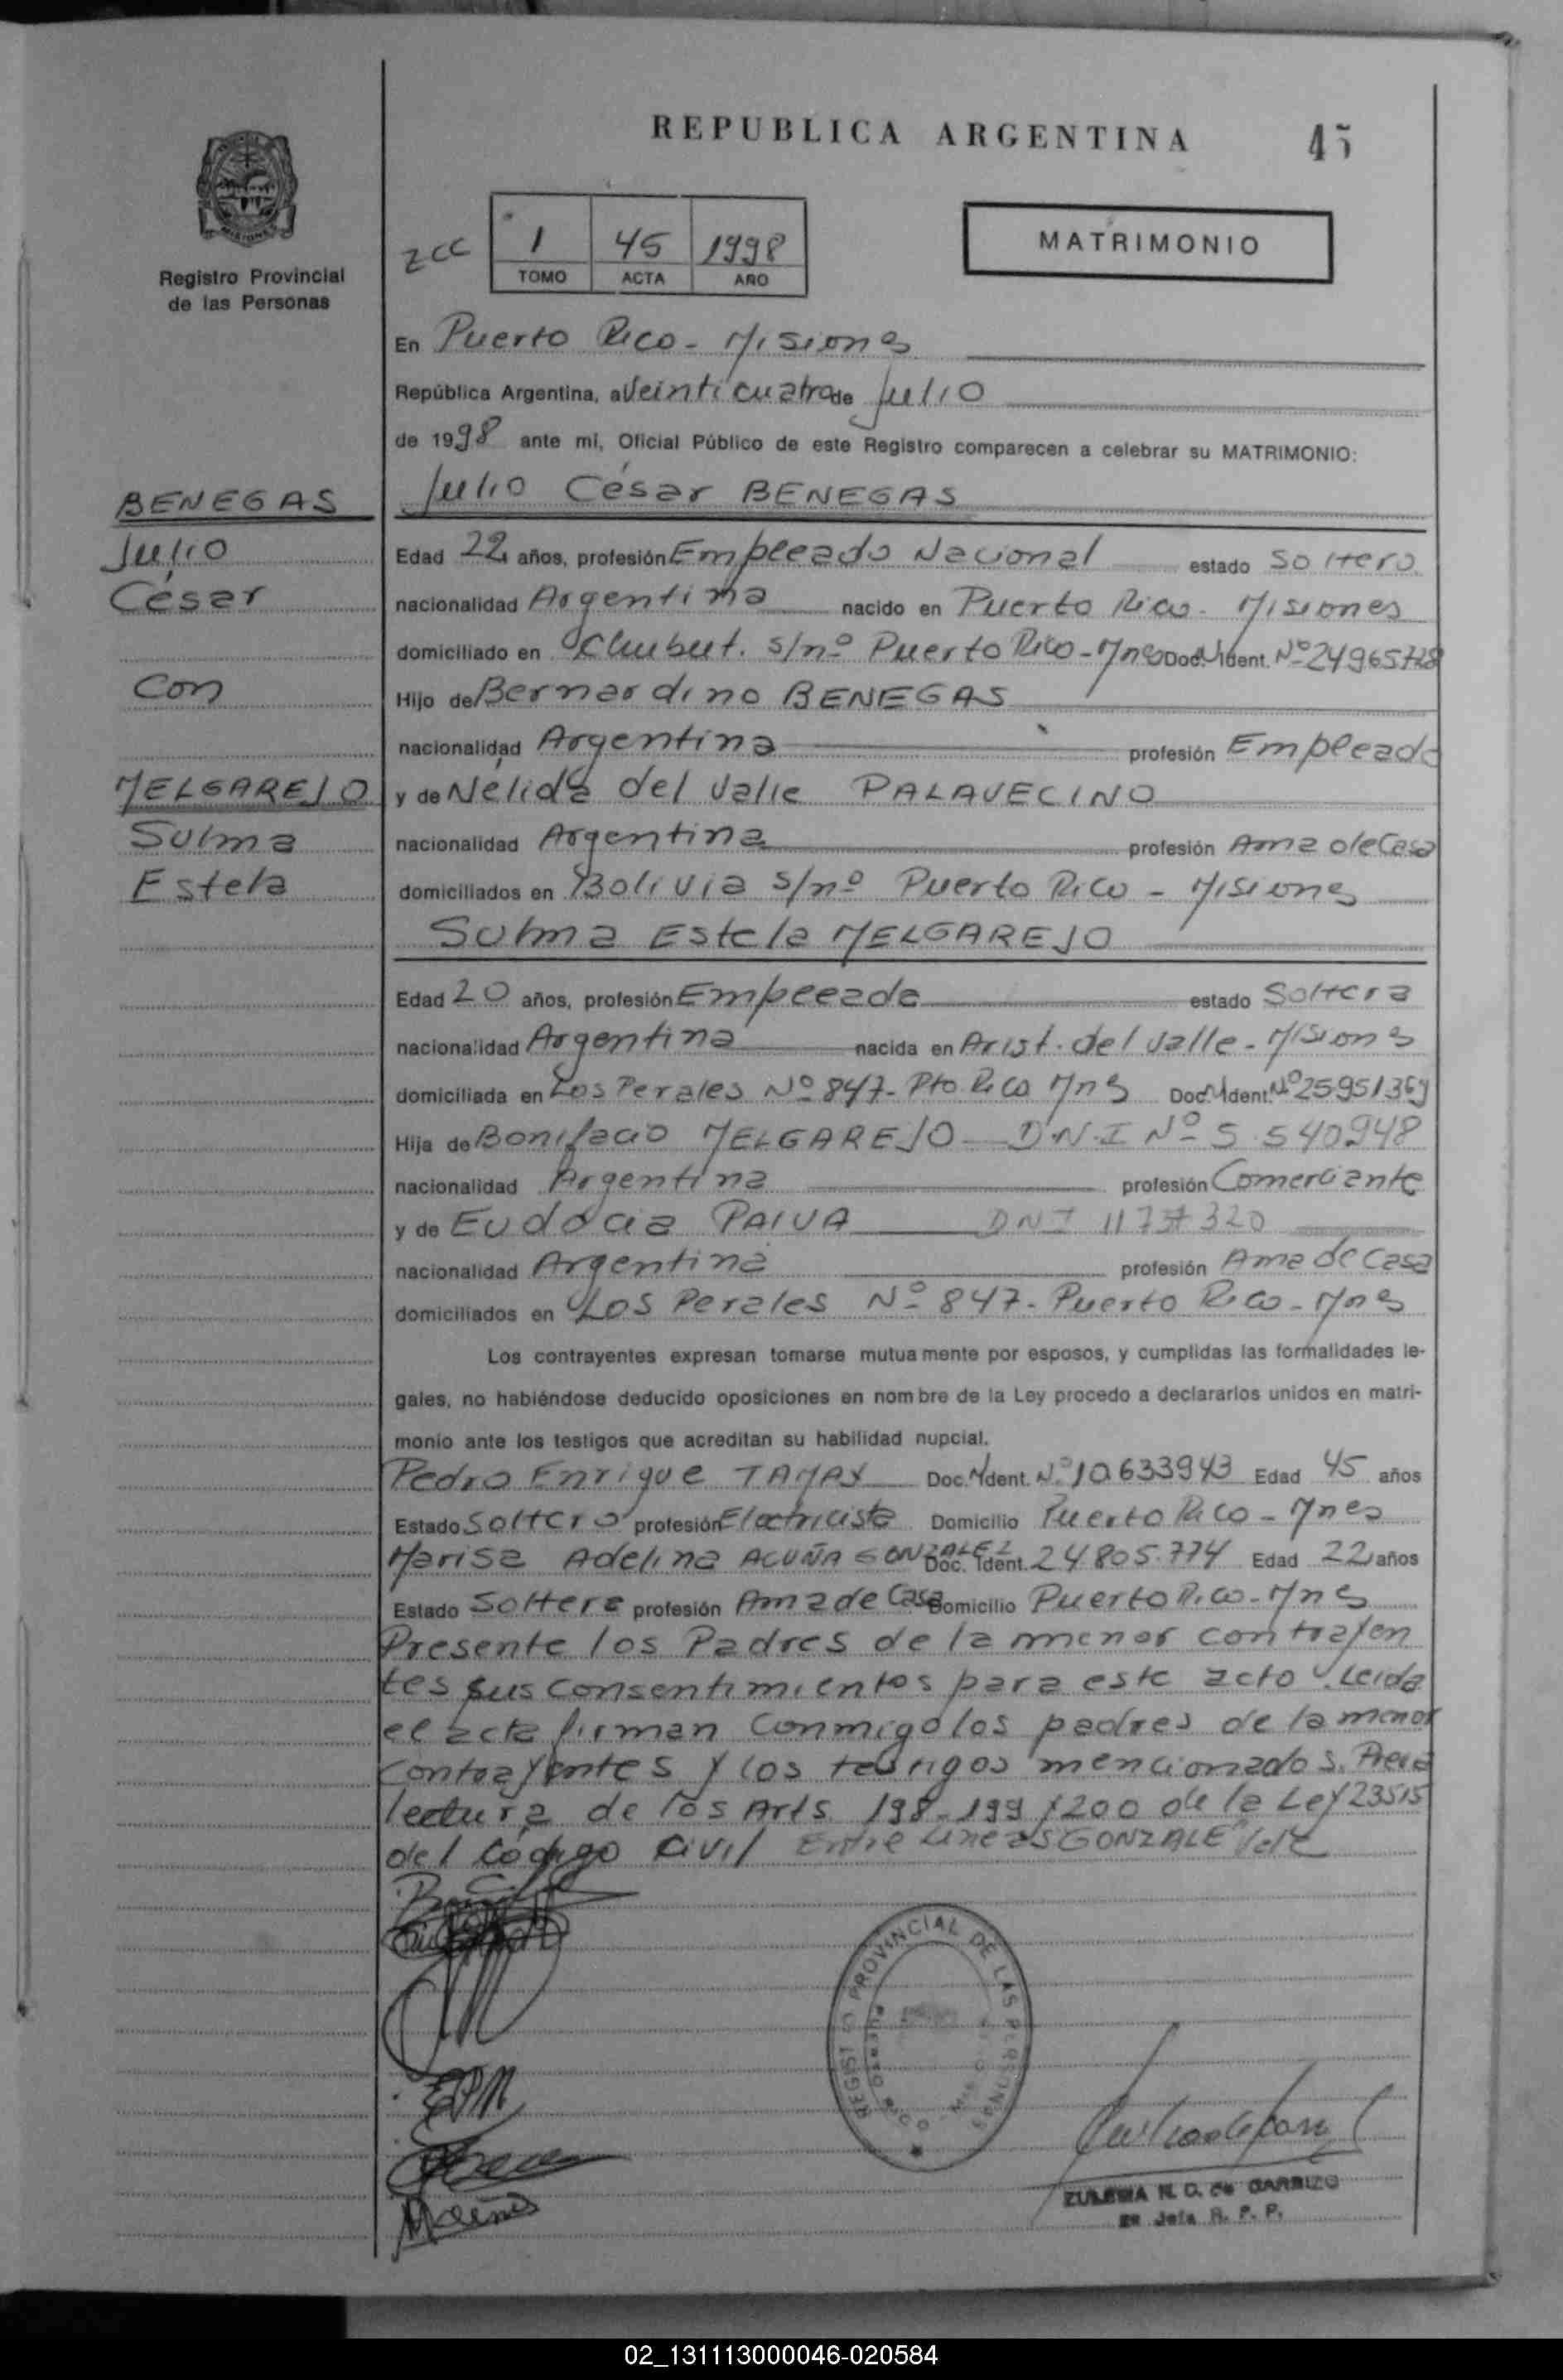 REPUBLICA ARGENTINA
45
MISIONES
Registro Provincial
de las Personas
zcc
1 45 1998
TOMO ACTA AÑO
MATRIMONIO
En Puerto Rico - Misiones
República Argentina, a Veinticuatro de Julio
de 1998 ante mi, Oficial Público de este Registro comparecen a celebrar su MATRIMONIO:
Julio César BENEGAS
BENEGAS
Julio
César
Con
MELGAREJO
Sulma
Estela
Edad 22 años, profesión Empleado Nacional estado Soltero
nacionalidad Argentina nacido en Puerto Rico - Misiones
domiciliado en Chubut. s/nº Puerto Rico - Mnes Doc. N Ident. Nº 24965728
Hijo de Bernardino BENEGAS
nacionalidad Argentina profesión Empleado
y de Nélida del Valle PALAVECINO
nacionalidad Argentina profesión Ama de Casa
domiciliados en Bolivia s/nº Puerto Rico - Misiones
Sulma Estela MELGAREJO
Edad 20 años, profesión Empleada estado Soltera
nacionalidad Argentina nacida en Arist. del Valle - Misiones
domiciliada en Los Perales Nº 847 - Pto. Rico Mnes Doc. N Ident. Nº 25951369
Hija de Bonifacio MELGAREJO D.N.I Nº 5.540948
nacionalidad Argentina profesión Comerciante
y de Eudocia PAIVA DNI
nacionalidad Argentina profesión Ama de Casa
domiciliados en Los Perales Nº 847 - Puerto Rico - Mnes
Los contrayentes expresan tomarse mutuamente por esposos, y cumplidas las formalidades le-
gales, no habiéndose deducido oposiciones en nombre de la Ley procedo a declararlos unidos en matri-
monio ante los testigos que acreditan su habilidad nupcial.
Pedro Enrique TAMAY Doc. N Ident. Nº 10.633943 Edad 45 años
Estado Soltero profesión Electricista Domicilio Puerto Rico - Mnes
Marisa Adelina ACUÑA GONZALEZ Doc. Ident. 24.805.774 Edad 22 años
Estado Soltera profesión Ama de Casa Domicilio Puerto Rico - Mnes
Presente los Padres de la menor contrayen
tes sus consentimientos para este acto. Leida
el acta firman conmigo los padres de la menor
contrayentes y los testigos mencionados. Previa
lectura de los Arts. 198-199 y 200 de la Ley 23515
del Código Civil Entre Lineas "GONZALE" Vale
REGISTRO PROVINCIAL DE LAS PERSONAS
ZULEMA N. C. de GARBIZO
Jefa R. P. P.
02_131113000046-020584